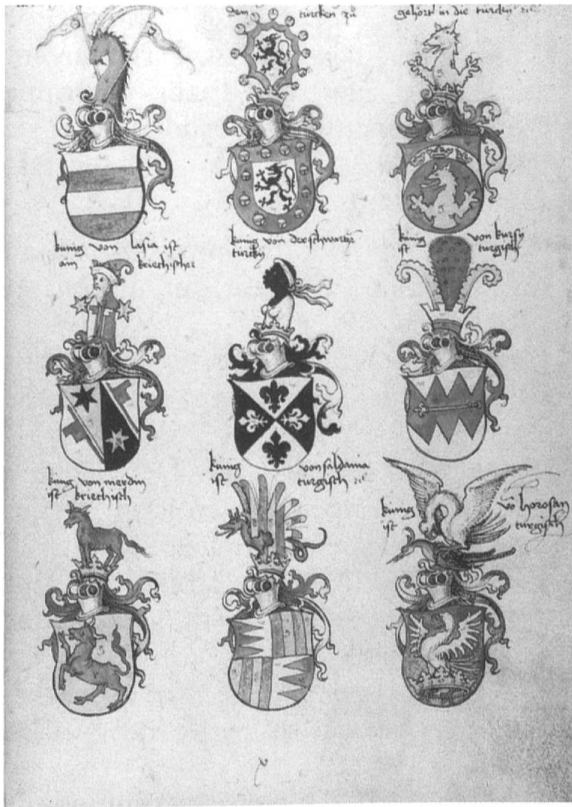 türcken zů
gehort in die türcken
kunig von lasia ist
ain kriechischer
kunig von der schwartze
türcky
kunig von kursy
ist turgisch
kunig von merdin
ist kriechisch
kunig von saldania
ist turgisch
kunig vo horosan
ist turgisch